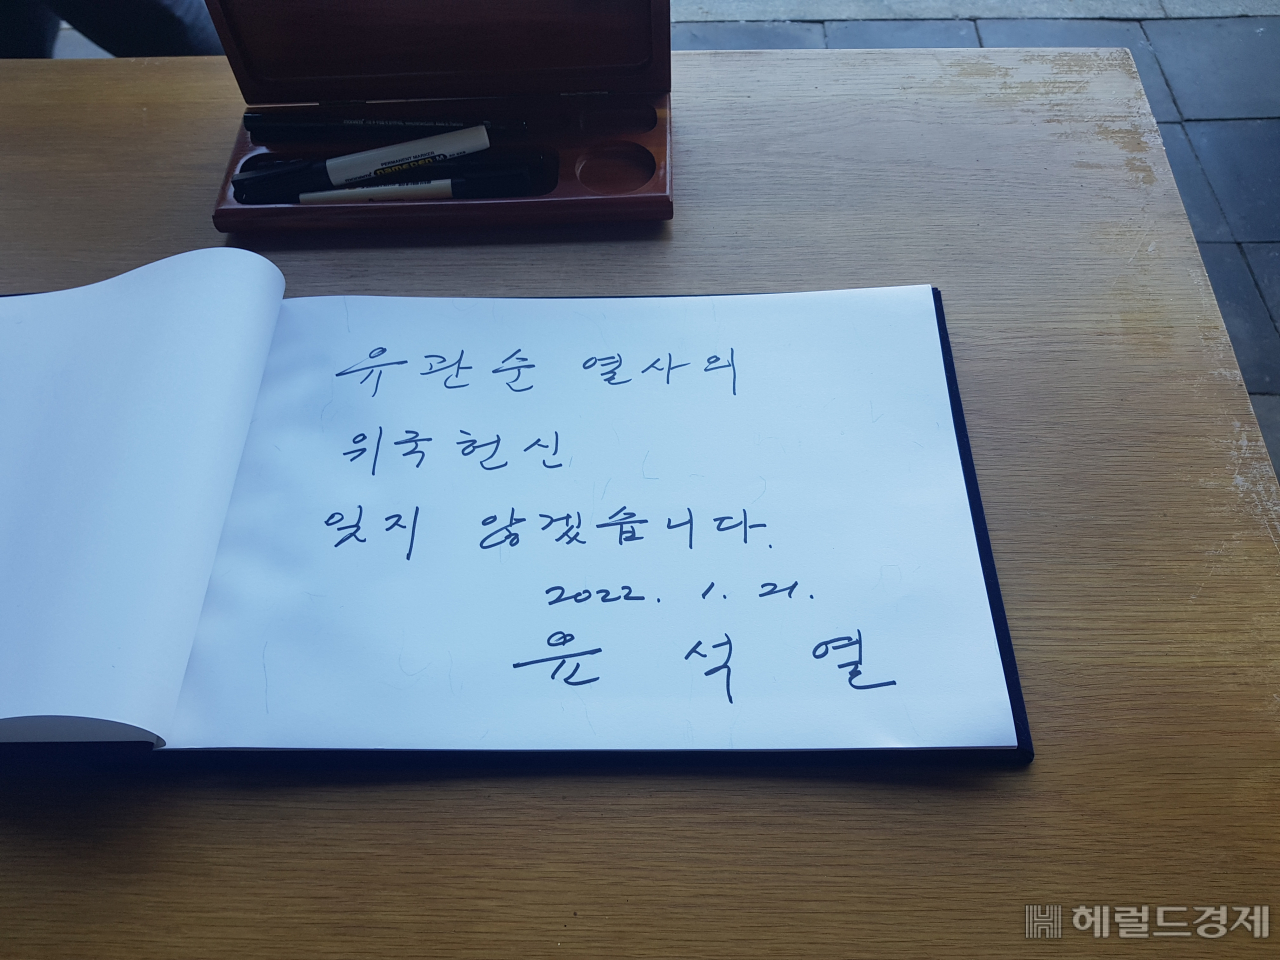 PERMANENT MARKER
namepen
유관순 열사의
위국헌신
잊지 않겠습니다.
2022. 1. 21.
윤석열
헤럴드경제